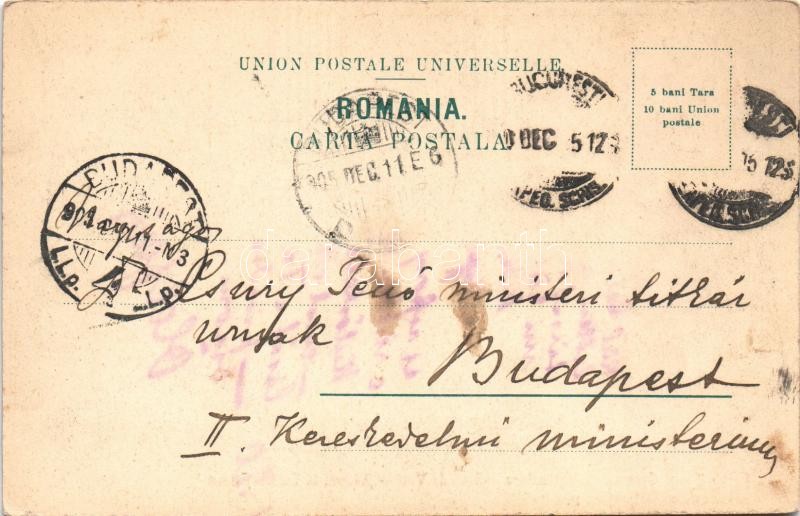 UNION POSTALE UNIVERSELLE
ROMANIA.
CARTA POSTALA.
5 bani Tara
10 bani Union
postale
BUCUREST
DEC 5 12
EXPED. SCRIS.
5 12
905 DEC. 11 E 6
BUDAPEST
L.L.p.
Nagyságos
Csury Jenő ministeri titkár
urnak
Budapest
II. Kereskedelmi ministerium
darabanth